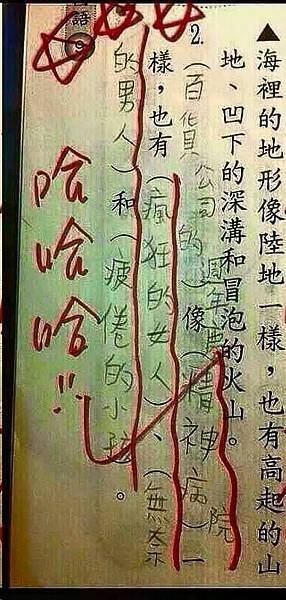 ▲海裡的地形像陸地一樣，也有高起的山
地、凹下的深溝和冒泡的火山。
2.（百貨公司的週年慶）像（精神病院）一
樣，也有（瘋狂的女人）、（無奈
的男人）和（疲倦的小孩）。
語
哈哈哈!!